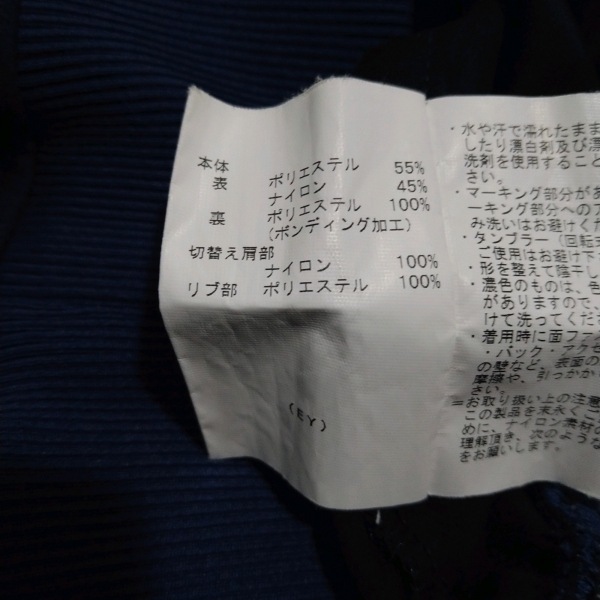 本体
表 ポリエステル 55%
ナイロン 45%
裏 ポリエステル 100%
(ボンディング加工)
切替え肩部
ナイロン 100%
リブ部 ポリエステル 100%
(EY)
・水や汗で濡れたまま
したり漂白剤及び漂
洗剤を使用すること
さい。
・マーキング部分があ
ーキング部分へのア
み洗いはお避けくだ
・タンブラー(回転式
ご使用はお避け下
・形を整えて陰干し
・濃色のものは、色
がありますので、
けて洗ってくださ
・着用時に面ファ
・バック・アクセ
の壁など、表面の
摩擦や、引っかか
さい。
=お取り扱い上の注意
この製品を末永くご
めに、ナイロン素材の
理解頂き、次のような
をお願いします。